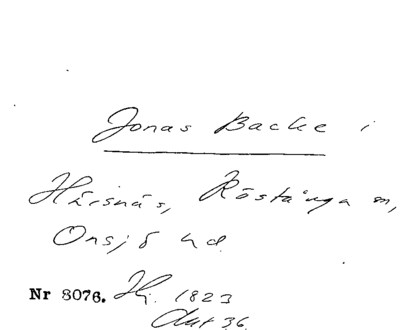 Jonas Backe i
Härsnäs, Röstånga sn,
Onsjö hd.
Nr 8076. Hj. 1823
36.